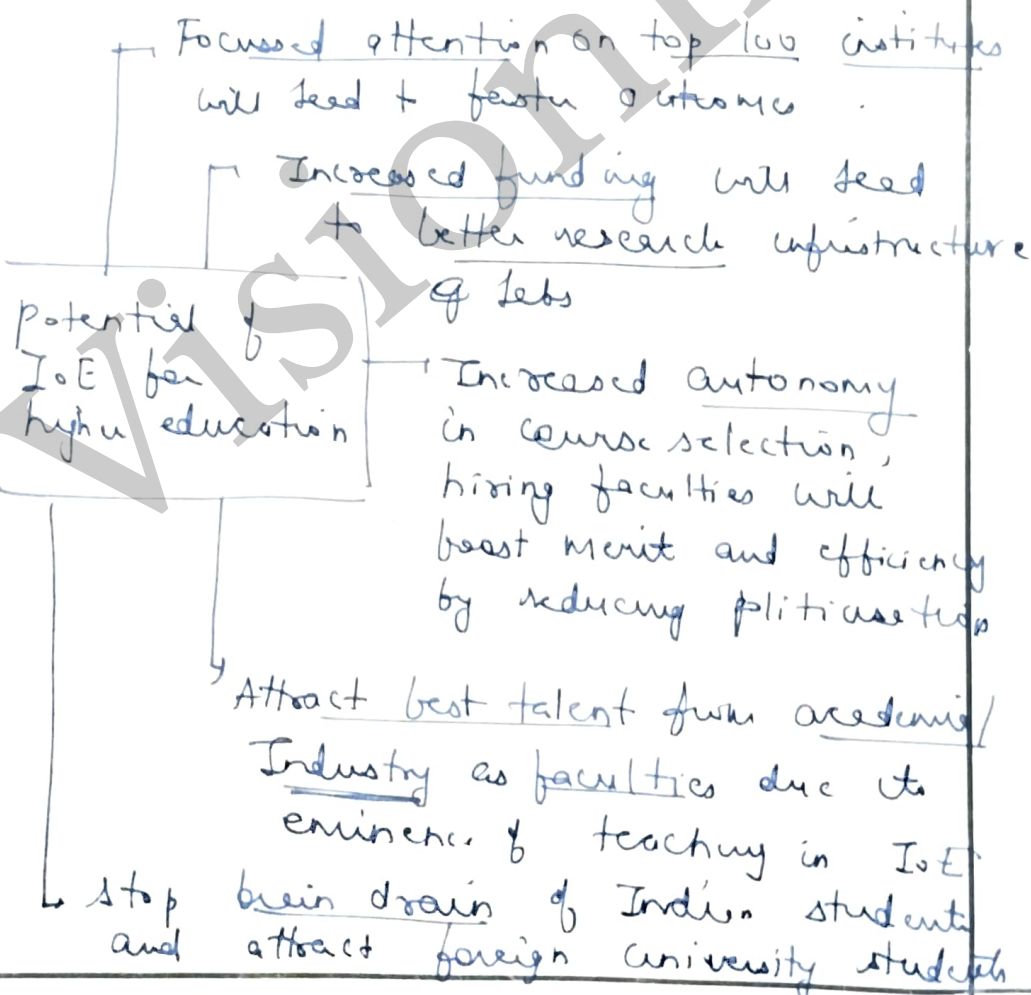 Focussed attention on top 100 institutes
will lead to faster outcomes.
Increased funding will lead
to better research infrastructure
& labs
Potential of
IoE for
higher education
Increased autonomy
in course selection,
hiring faculties will
boost merit and efficiency
by reducing politicisation
Attract best talent from academia/
Industry as faculties due to
eminence of teaching in IoE
Stop brain drain of Indian students
and attract foreign university students
Vision